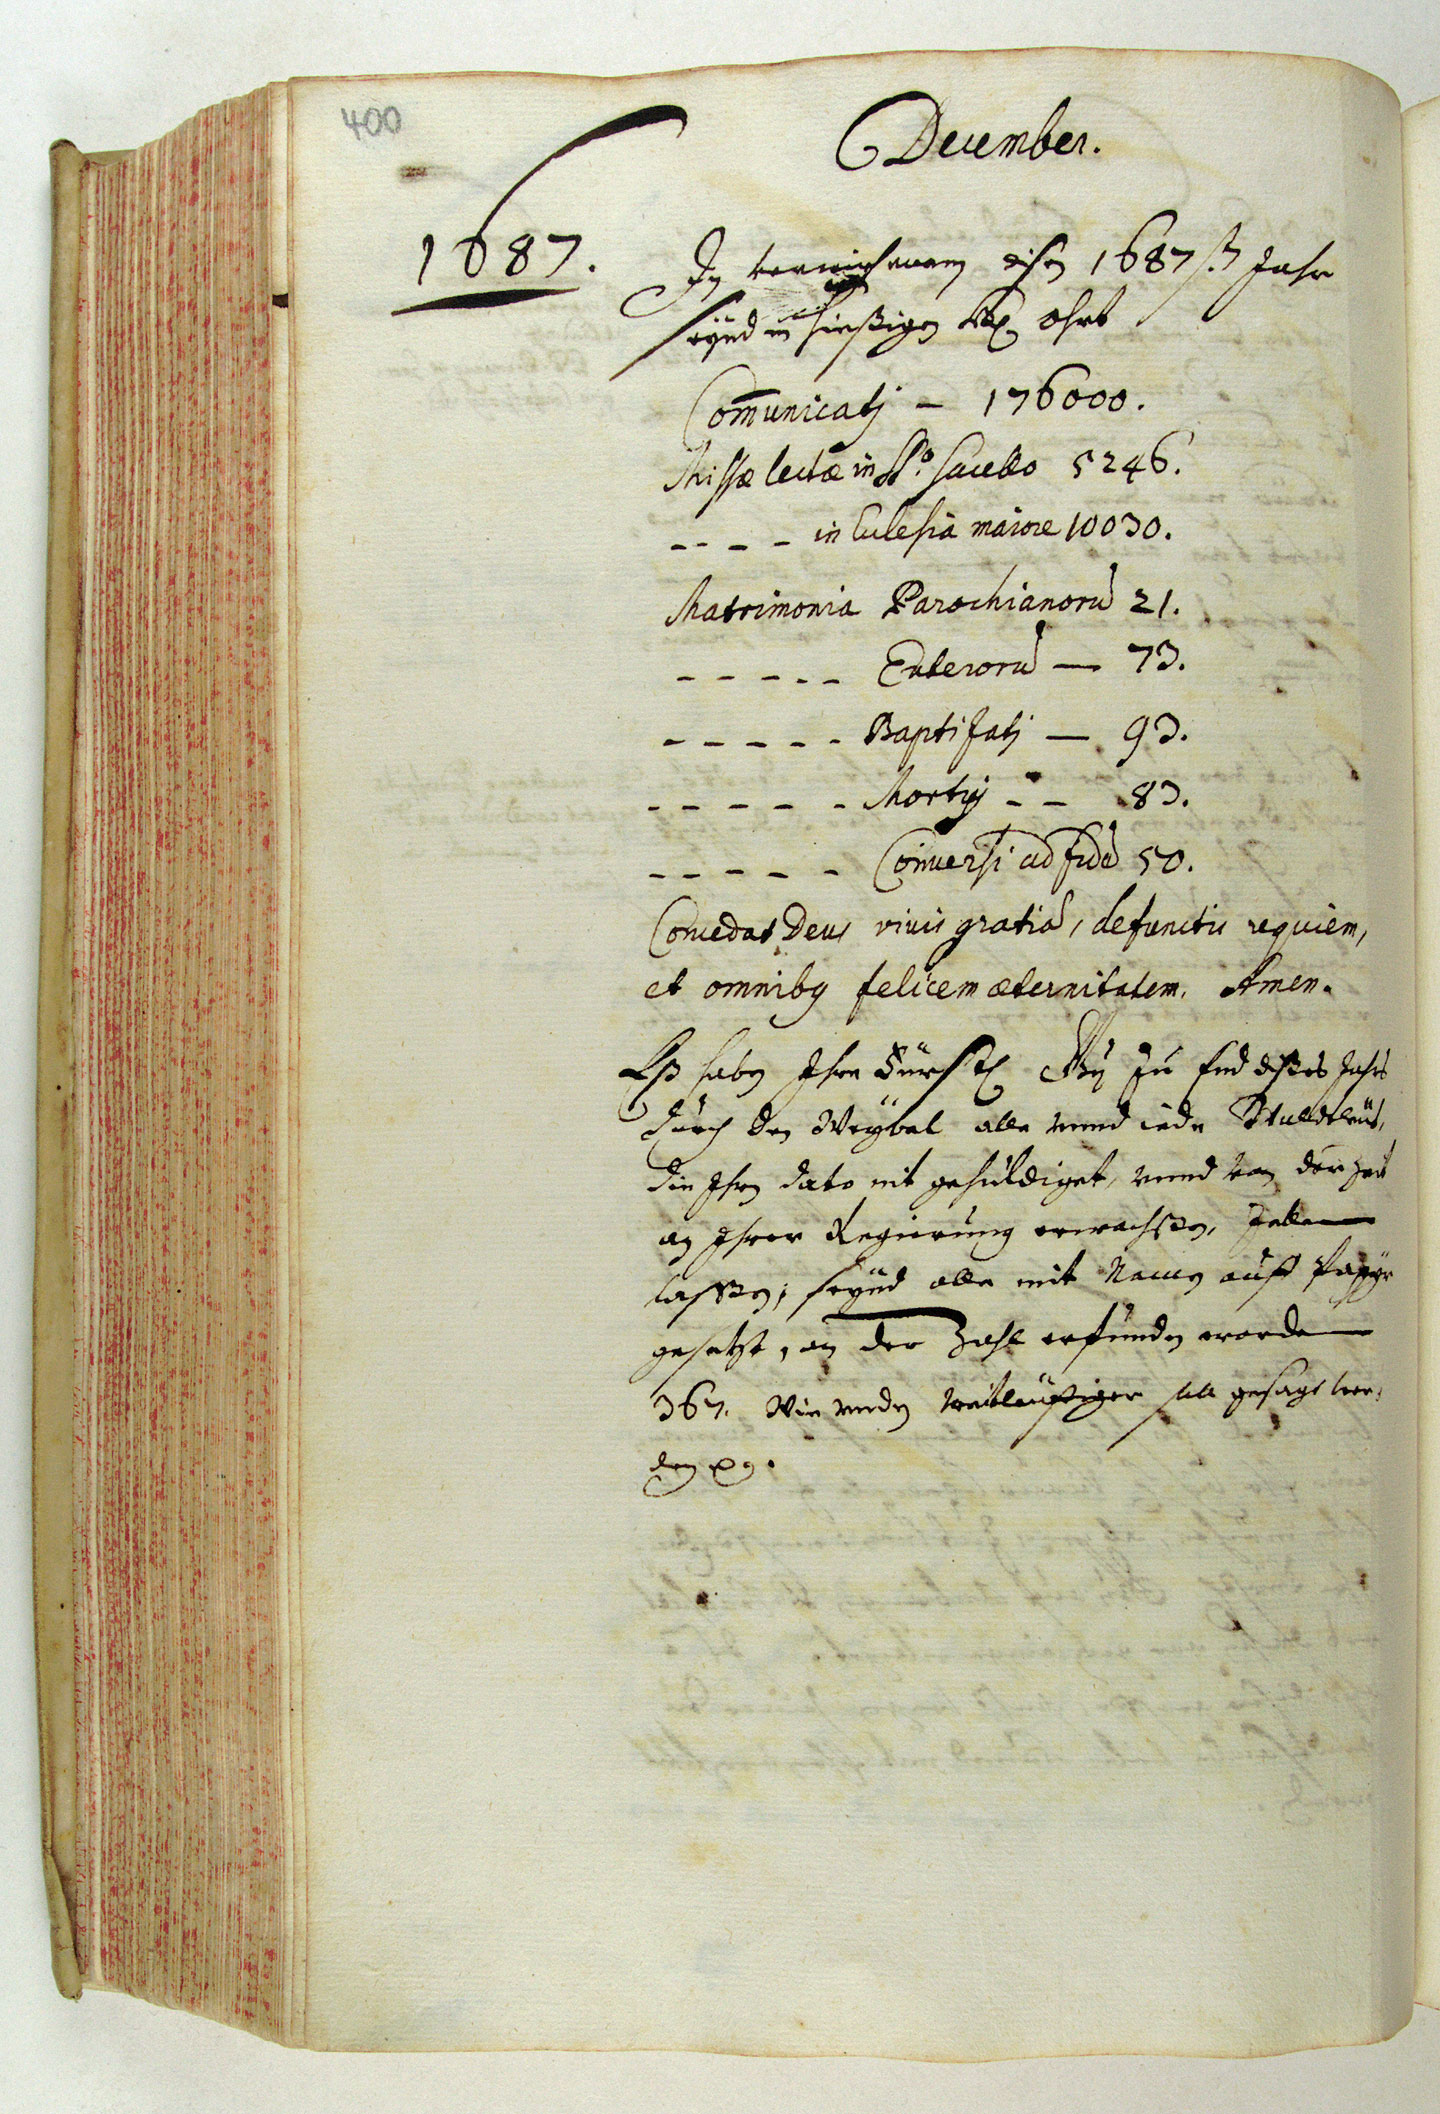 400
December.
1687.
In verwichenem disen 1687.st Jahr
seynd in hießigen ohrt
Communicatj – 176000.
Missæ lectæ in S.º Sacello 5246.
– – – – in Ecclesia maiore 10030.
Matrimonia Parochianorũ 21.
– – – – – Exterorũ — 73.
– – – – – Baptisatj — 93.
– – – – – Mortuj – – 83.
– – – – – Conversi ad fidẽ 50.
Concedat Deus vivis gratiã, defunctis requiem,
et omnibq felicem æternitatem. Amen.
Eß haben Ihre Fürstl. zu End dißes Jahrs
durch den Weybel alle vnnd iede Waldtleüt,
die Ihren dato nit gehuldiget, vnnd von der Zeit
an Ihrer Regierung erwachßen, Zellen
lassen; seynd alle mit Namen auff Papyr
gesetzt, an der Zahl erfunden worden
367. Wie vnden weitleüffiger soll gesagt wer,
den